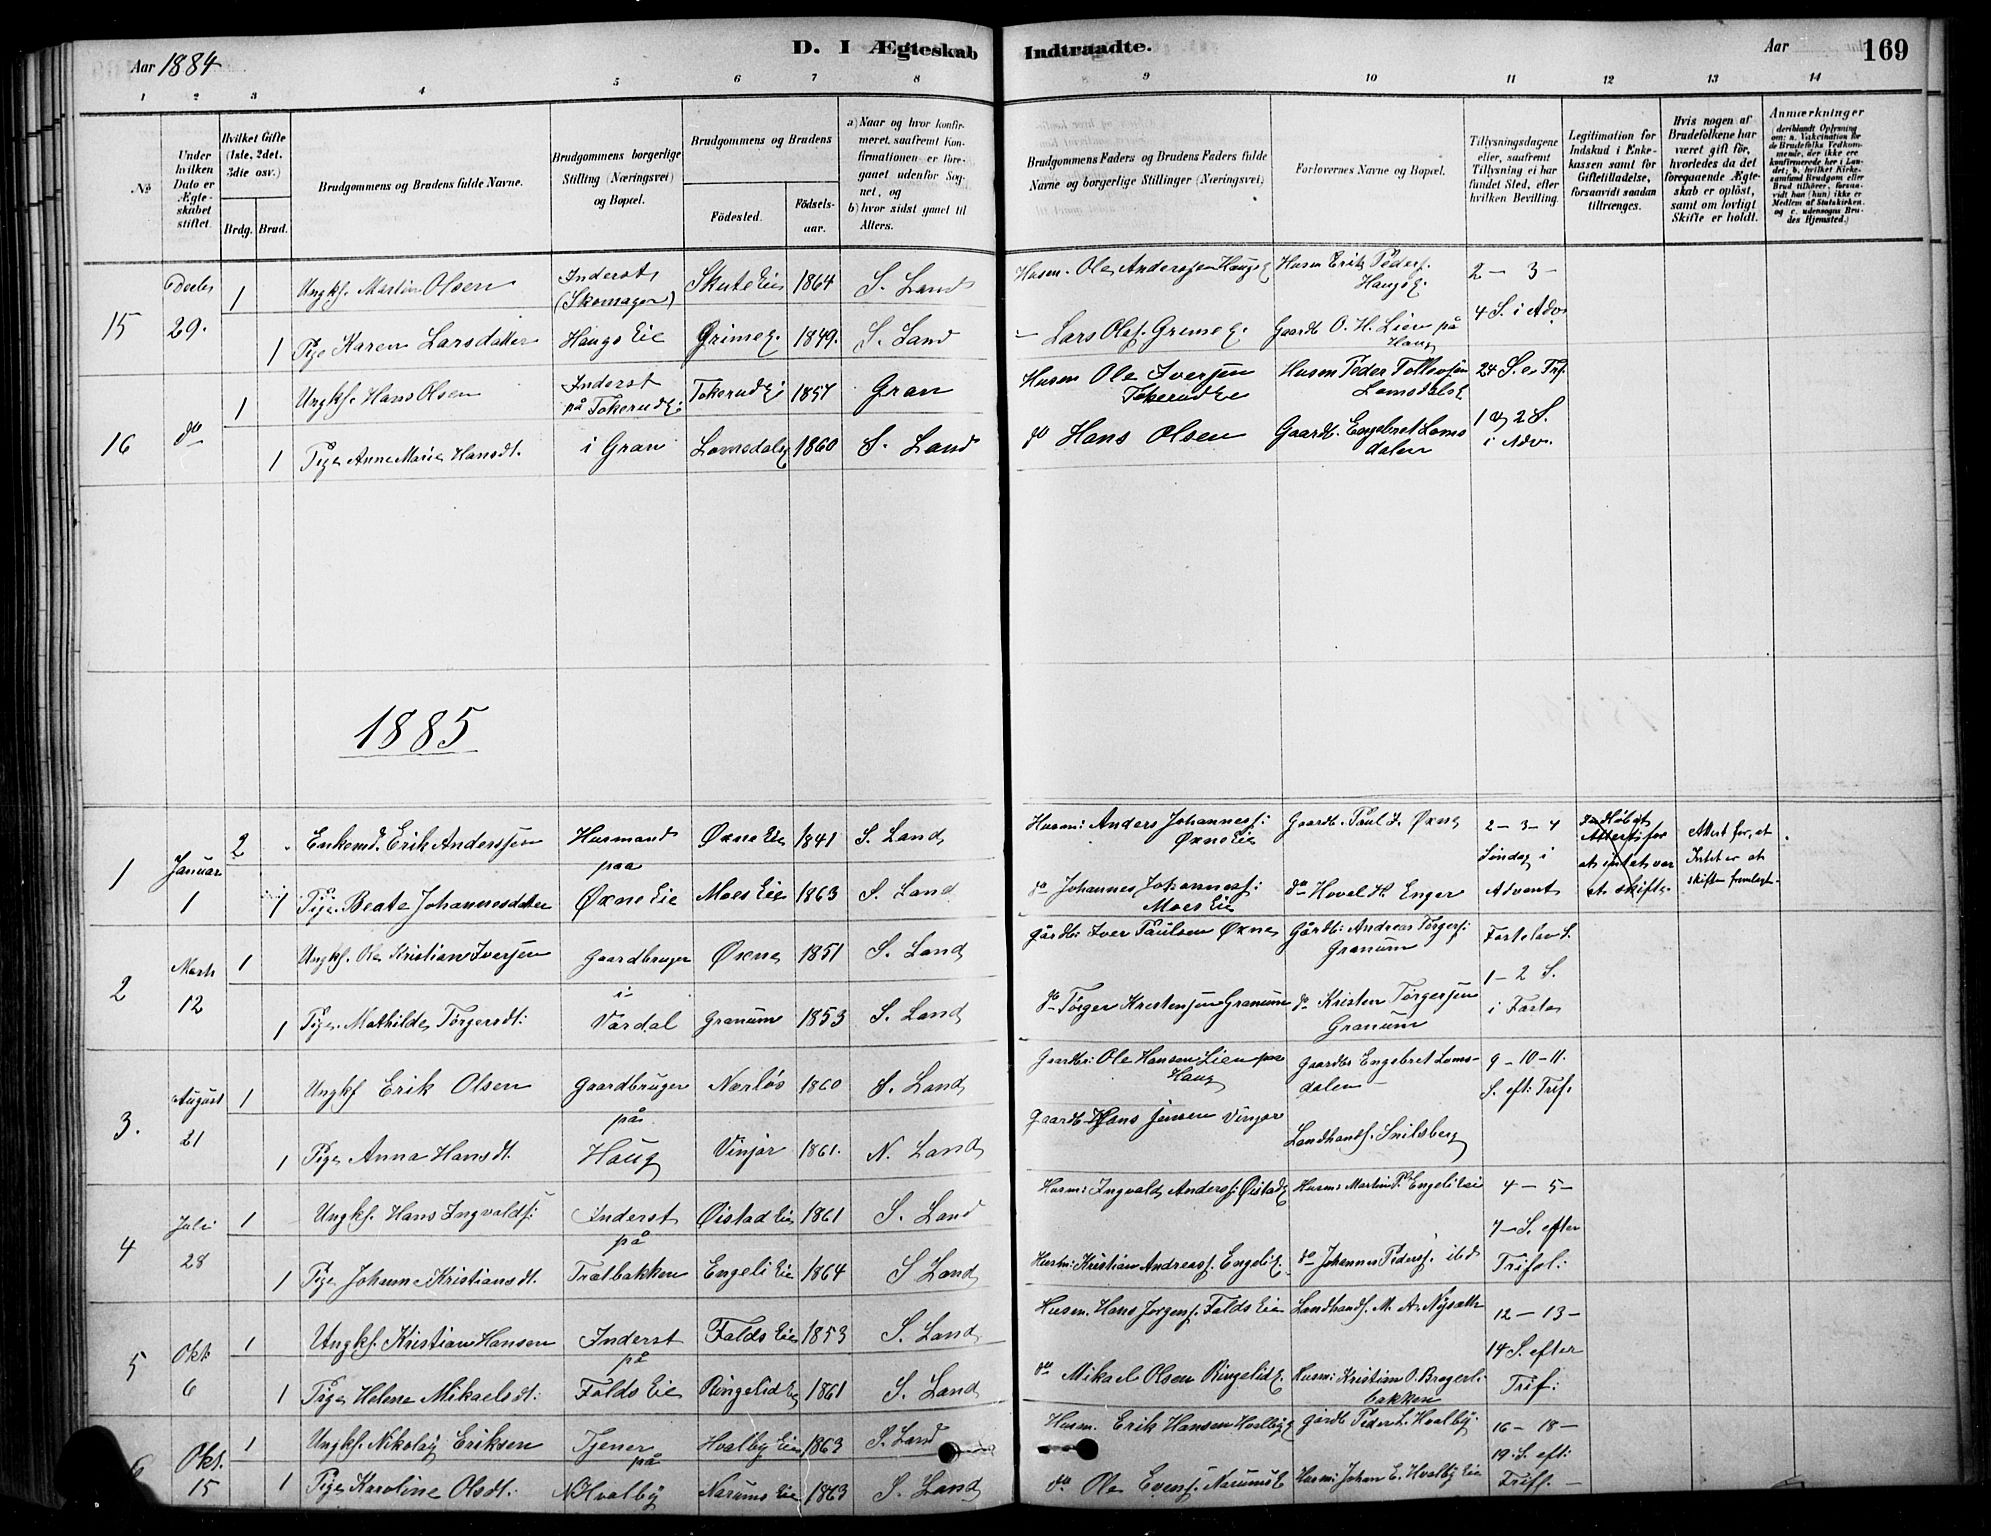 Aar 1884
D. I Ægteskab Indtraadte.
Aar
169
1 2 3 4 5 6 7 8 9 10 11 12 13 14
No
Under hvilken Dato er Ægteskabet stiftet.
Hvilket Gifte (1ste, 2det, 3die osv.)
Brdg. Brud.
Brudgommens og Brudens fulde Navne.
Brudgommens borgerlige Stilling (Næringsvei) og Bopæl.
Brudgommens og Brudens
Fødested.
Fødselsaar.
a) Naar og hvor konfirmeret, saafremt Konfirmationen er foregaaet udenfor Sognet, og
b) hvor sidst gaaet til Alters.
Brudgommens Faders og Brudens Faders fulde Navne og borgerlige Stillinger (Næringsvei)
Forlovernes Navne og Bopæl.
Tillysningsdagene eller, saafremt Tillysning ei har fundet Sted, efter hvilken Bevilling.
Legitimation for Indskud i Enkekassen samt for Giftetilladelse, forsaavidt saadan tiltrænges.
Hvis nogen af Brudefolkene har været gift før, hvorledes da det foregaaende Ægteskab er opløst, samt om lovligt Skifte er holdt.
Anmærkninger (deriblandt Oplysning om: a. Vakcination for de Brudefolks Vedkommende, der ikke ere konfirmerede her i Landet; b. hvilket Kirkesamfund Brudgom eller Brud tilhører, forsaavidt han (hun) ikke er Medlem af Statskirken, og c. udensogns Brudes Hjemsted.)
15 Decbr 29. 1 Ungkf. Martin Olsen Inderst (Skomager) Skute Eie 1864 S. Land Husm. Ole Anderssen Haugs E. Husm Erik Peders. Haugs E. 2 - 3 -
1 Pige Karen Larsdatter Haugs Eie Grime E. 1849. S. Land - Lars Ols. Grime E. Gaardb. O. H. Lien på Haug 4 S. i Adv.
16 do 1 Ungkf. Hans Olsen Inderst på Tokerud E: Tokerud E: 1857 Gran Husm Ole Iversen Tokerud Eie Husm Peder Tollevsen Lomsdals E 24 S. e. Trf.
1 Pige Anne Marie Hansdt. i Gran Lomsdals E 1860 S. Land do Hans Olsen Gaardb. Engebret Lomsdalen 1 og 2 S. i Adv.
1885
1 Januar 1 2 Enkemd. Erik Anderssen Husmand paa Øxne Eie 1841 S. Land Husm: Anders Johanness: Øxne Eie Gaardb. Paul I. Øxne 2 - 3 - 4 Søndag i at intet var at skifte Attest for, at Intet er at skifte fremlagt.
1 Pige Beate Johannesdatter Øxne Eie Moes Eie 1863 S. Land do Johannes Johanness: Moes Eie do Hovel H. Enger Advent
2 Marts 12 1 Ungkf. Ole Kristian Iversen Gaardbruger i Øxne 1851 S. Land Gårdb: Iver Paulsen Øxne Gårdb: Andreas Torgers: Granum Fastelav S.
1 Pige Mathilde Torgersdt: Vardal Granum 1853 S. Land do Torger Kristensen Granum do Kristen Torgersen Granum 1 - 2 S. i Faste
3. August 21 1 Ungkf Erik Olsen Gaardbruger på Nerlös 1860 S. Land Gaardb: Ole Hansen Lien paa Haug Gaardb Engebret Lomsdalen 9 - 10 - 11. S. eft: Trif.
1 Pige Anna Hansdt. Haug Vinjar 1861. N. Land Gaardb Hans Jensen Vinjar Landhandl. Snilsberg
4 Juli 28 1 Ungkf. Hans Ingvalds: Inderst på Øistad Eie 1861 S. Land Husm: Ingvald Anders: Øistad E Husm: Martin P. Engeli Eie 4 - 5 -
1 Pige Johanne Kristiansdt. Trætbakken Engeli Eie 1864 S Land Husm: Kristian Andreas. Engeli E. do Johannes Peders. ibd 7 - S. efter Trifol:
5 Okt 6 1 Ungkf. Kristian Hansen Inderst på Falds Eie 1853 S. Land Husm. Hans Jørgens. Falds Eie Landhandl. M. A. Nysæth 12 - 13 -
1 Pige Helene Mikaelsdt: Falds Eie Ringelid E 1861 S. Land do Mikael Olsen Ringelid E. Husm: Kristian O. Bragerlibakken 14 S. efter Trif:
6 Okt. 15 1 Ungkf. Nikolaj Eriksen Tjener på Hvalby Eie 1863 S. Land Husm. Erik Hansen Hvalby E Gårdb Peder L. Hvalby. 16 - 18 -
1 Pige Karoline Olsdt: N Hvalby Narums Eie 1863 S. Land do Ole Evens. Narums E Husm: Johan E. Hvalby Eie 19. S. eft: Triff. -